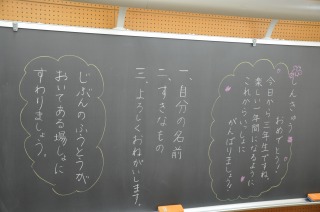 しんきゅう
おめでとう!
今日から三年生ですね。
楽しい一年間になるように
これからいっしょに
がんばりましょう!
一、自分の名前
二、すきなもの
三、よろしくおねがいします。
じぶんのふうとうが
おいてある場しょに
すわりましょう。